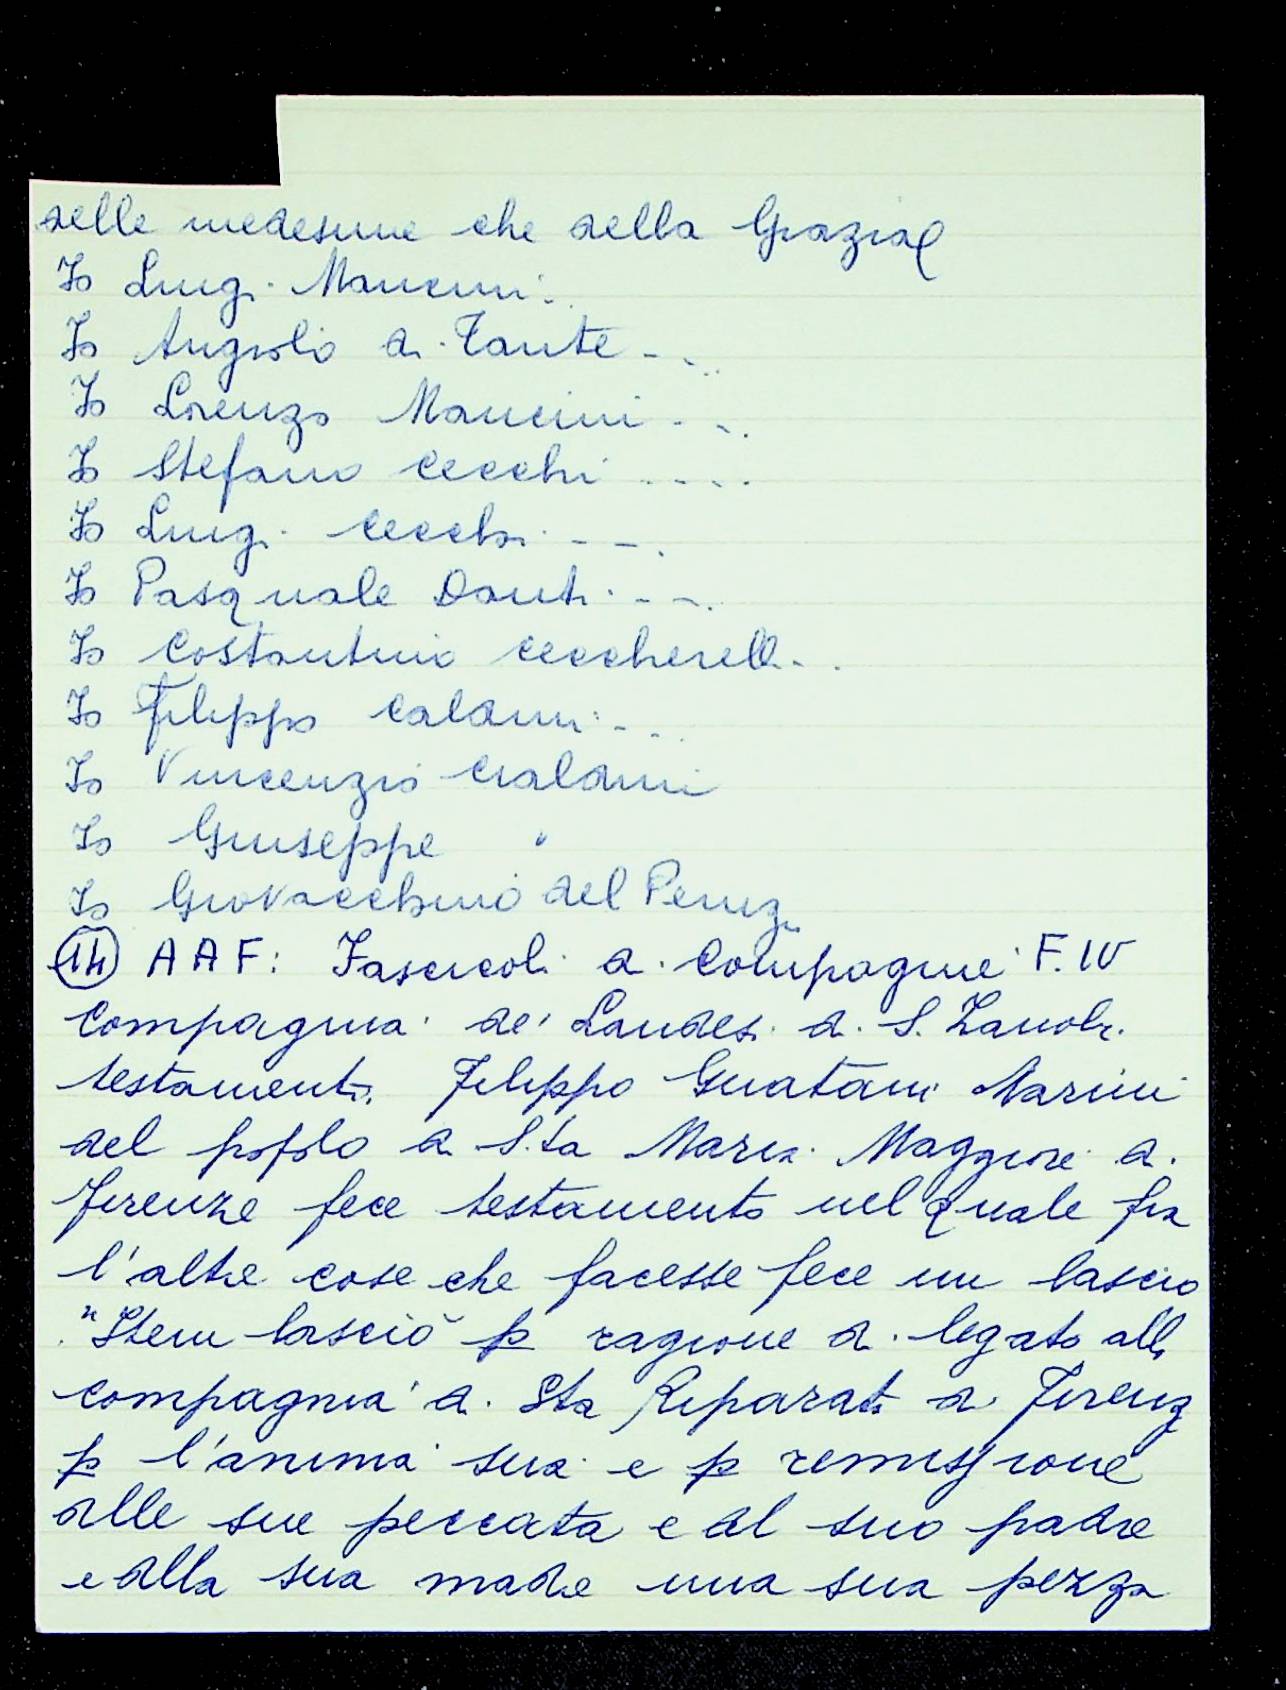 delle medesime che della Grazia
Io Luigi Mancini...
Io Angiolo di Tante...
Io Lorenzo Mancini...
Io Stefano Cecchi....
Io Luigi Cecchi...
Io Pasquale Danti...
Io Costantino Ceccherelli..
Io Filippo Caldini...
Io Vincenzio Cialdini
Io Giuseppe "
Io Giovacchino del Perug
(14) AAF: Fascicoli di Compagnie F. IV
Compagnia de' Laudesi di S. Zanobi.
testamento. Filippo Marini
del popolo di S.ta Maria Maggiore di
Firenze fece testamento nel quale fra
l'altre cose che facesse fece un lascio
"Item lasciò p ragione di legato alla
compagnia di Sta Riparata di Firenz
p l'anima sua e p remissione
delle sue peccata e del suo padre
e della sua madre una sua pezza